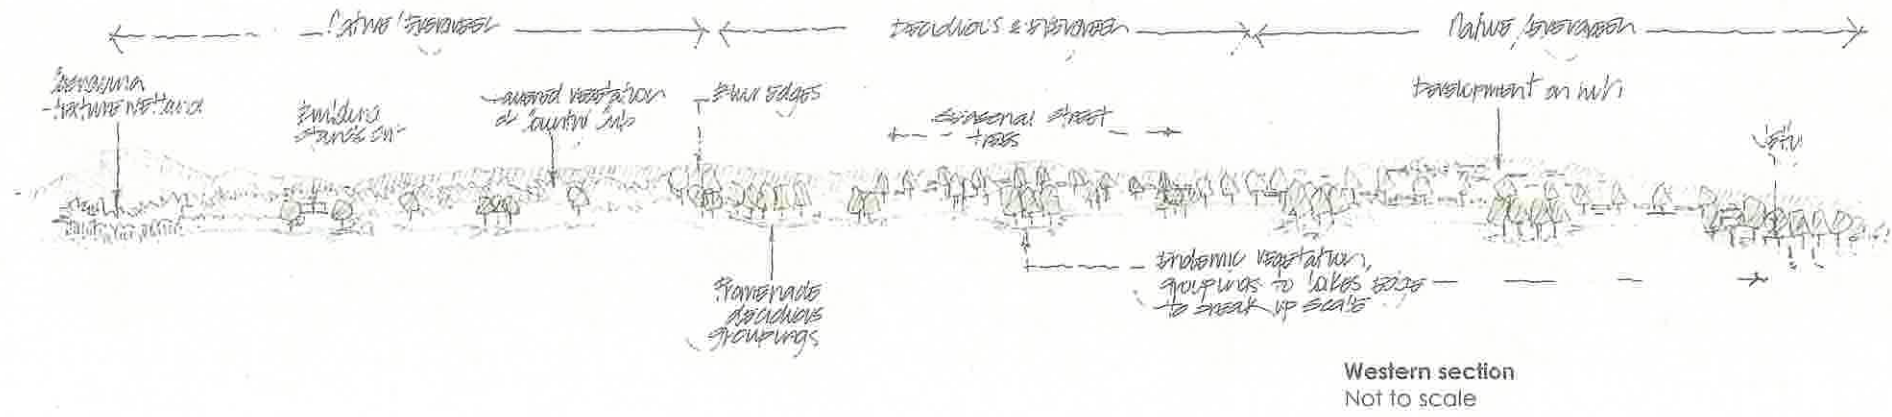 Native / Evergreen
Deciduous & Evergreen
Native / Evergreen
texture wetland
Building
stands out
Layered vegetation
at Country Club
Blur edges
Seasonal street
trees
Development on hill
Promenade
deciduous
groupings
Endemic vegetation,
groupings to lakes edge
to break up scale
Western section
Not to scale